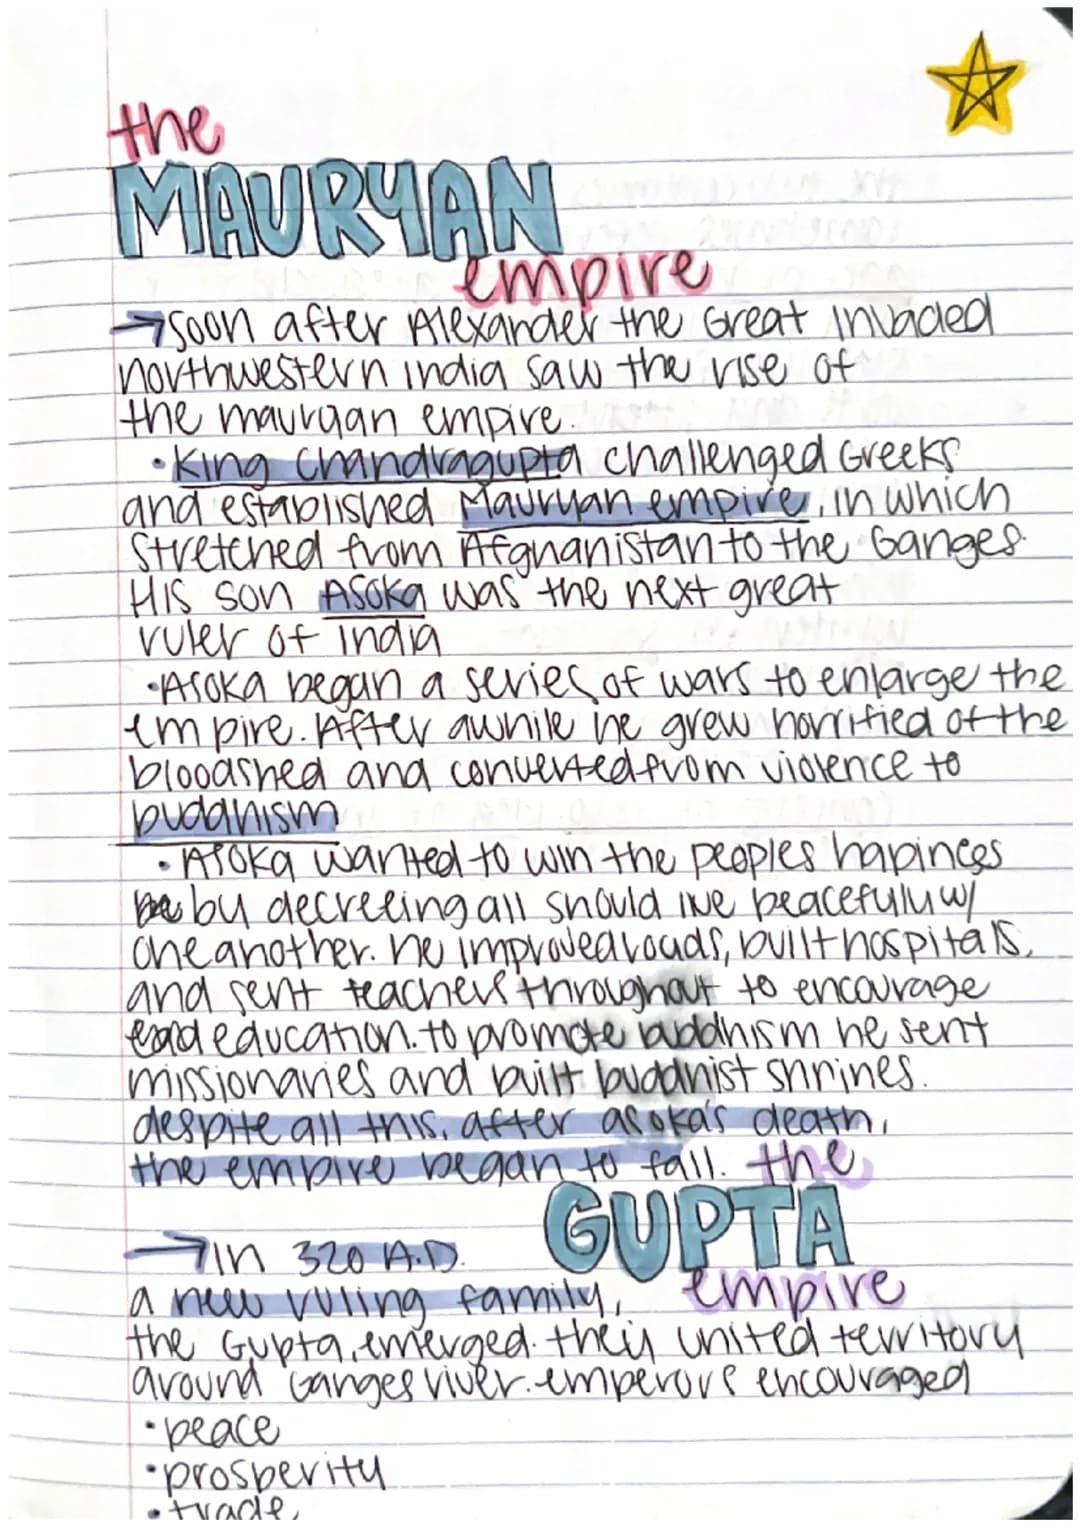 the
MAURYAN
empire
→ soon after Alexander the Great invaded
northwestern india saw the rise of
the mauryan empire.
• King Chandragupta challenged Greeks
and established Mauryan empire, in which
stretched from Afghanistan to the Ganges.
His son Asoka was the next great
ruler of india
• Asoka began a series of wars to enlarge the
empire. After awhile he grew horrified of the
bloodshed and converted from violence to
buddhism
• Asoka wanted to win the peoples hapiness
by decreeing all should live peacefully w/
one another. he improved roads, built hospitals,
and sent teachers throughout to encourage
education. to promote buddhism he sent
missionaries and built buddhist shrines.
despite all this, after asoka's death,
the empire began to fall.
the
GUPTA
empire
→ in 320 A.D.
a new ruling family,
the Gupta, emerged. they united territory
around Ganges river. emperors encouraged
• peace
• prosperity
• trade